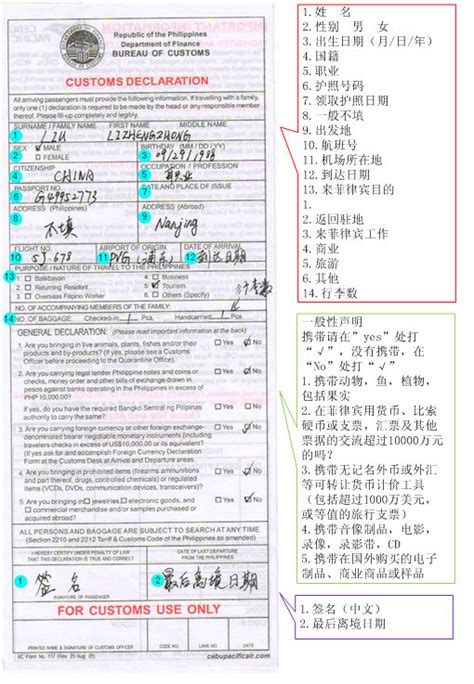 Republic of the Philippines
Department of Finance
BUREAU OF CUSTOMS
CUSTOMS DECLARATION
All arriving passengers must provide the following information. If travelling with a family, only one (1) declaration is required to be made by the head or any responsible member thereof. Please fill-up completely and legibly.
SURNAME / FAMILY NAME FIRST NAME MIDDLE NAME
1 LIU LIZHENGZHONG
SEX MALE
2 FEMALE
BIRTHDAY (MM / DD / YY)
3 09/29/1988
CITIZENSHIP
4 CHINA
OCCUPATION / PROFESSION
5
PASSPORT NO.
6 G49952773
DATE AND PLACE OF ISSUE
7
ADDRESS (Philippines)
8 不填
ADDRESS (Abroad)
9 Nanjing
FLIGHT NO.
10 5J.678
AIRPORT OF ORIGIN
11 PVG (浦东)
DATE OF ARRIVAL
12 到达日期
PURPOSE / NATURE OF TRAVEL TO THE PHILIPPINES
13 1. Balikbayan 4. Business
2. Returning Resident 5. Tourism
3. Overseas Filipino Worker 6. Others (Specify)
行李数
NO. OF ACCOMPANYING MEMBERS OF THE FAMILY:
14 NO. OF BAGGAGE: Checked-in 1 Pcs. Handcarried 1 Pcs.
GENERAL DECLARATION: (Please read important information at the back)
1. Are you bringing in live animals, plants, fishes and/or their products and by-products? (If yes, please see a Customs Officer before proceeding to the Quarantine Office). Yes No
2. Are you carrying legal tender Philippine notes and coins or checks, money order and other bills of exchange drawn in pesos against banks operating in the Philippines in excess of PHP 10,000.00? Yes No
If yes, do you have the required Bangko Sentral ng Pilipinas authority to carry the same? Yes No
3. Are you carrying foreign currency or other foreign exchange-denominated bearer negotiable monetary instruments (including travelers checks in excess of US$10,000.00 or its equivalent)? (If yes ask for and accomplish Foreign Currency Declaration Form at the Customs Desk at Arrival and Departure areas. Yes No
4. Are you bringing in prohibited items (firearms ammunitions and part thereof, drugs, controlled chemicals) or regulated items (VCDs, DVDs, communication devices, transceivers)? Yes No
5. Are you bringing in jewelries, electronic goods, and commercial merchandise and/or samples purchased or acquired abroad? Yes No
ALL PERSONS AND BAGGAGE ARE SUBJECT TO SEARCH AT ANY TIME.
(Section 2210 and 2212 Tariff & Customs Code of the Philippines as amended)
I HEREBY CERTIFY UNDER PENALTY OF LAW THAT THIS DECLARATION IS TRUE AND CORRECT
1 签名
SIGNATURE OF PASSENGER
DATE OF LAST DEPARTURE FROM THE PHILIPPINES
2 最后离境日期
FOR CUSTOMS USE ONLY
PRINTED NAME & SIGNATURE OF CUSTOMS OFFICER CODE NO. LANE NO. DATE
BC Form No. 117 (Rev. 25 Aug. 05)
cebupacificair.com
1.姓 名
2.性别 男 女
3.出生日期（月/日/年）
4.国籍
5.职业
6.护照号码
7.领取护照日期
8.一般不填
9.出发地
10.航班号
11.机场所在地
12.到达日期
13.来菲律宾目的
1.
2.返回驻地
3.来菲律宾工作
4.商业
5.旅游
6.其他
14.行李数
一般性声明
携带请在"yes"处打
"√"，没有携带，在
"No"处打"√"
1.携带动物，鱼，植物，
包括果实
2.在菲律宾用货币、比索
硬币或支票，汇票及其他
票据的交流超过10000万元
的吗？
3.携带无记名外币或外汇
等可转让货币计价工具
（包括超过1000万美元，
或等值的旅行支票）
4.携带音像制品，电影，
录像，录影带，CD
5.携带在国外购买的电子
制品、商业商品或样品
1.签名（中文）
2.最后离境日期